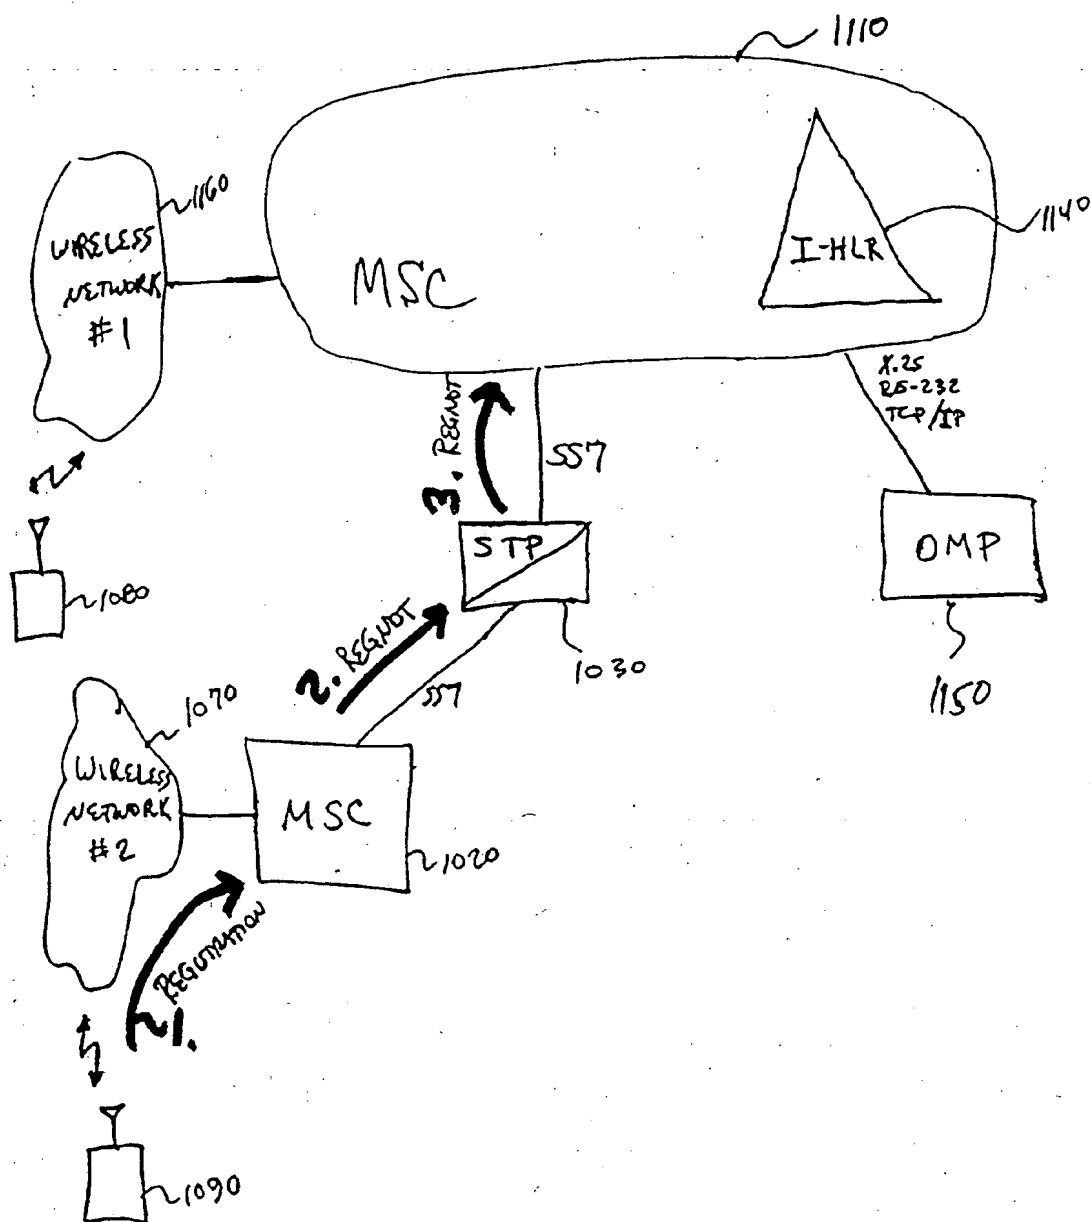 1110
1160
WIRELESS
NETWORK
#1
MSC
I-HLR
1140
X.25
RS-232
TCP/IP
3. REGNOT
SS7
STP
OMP
1080
1030
1150
2. REGNOT
SS7
1070
WIRELESS
NETWORK
#2
MSC
1020
1.
1090